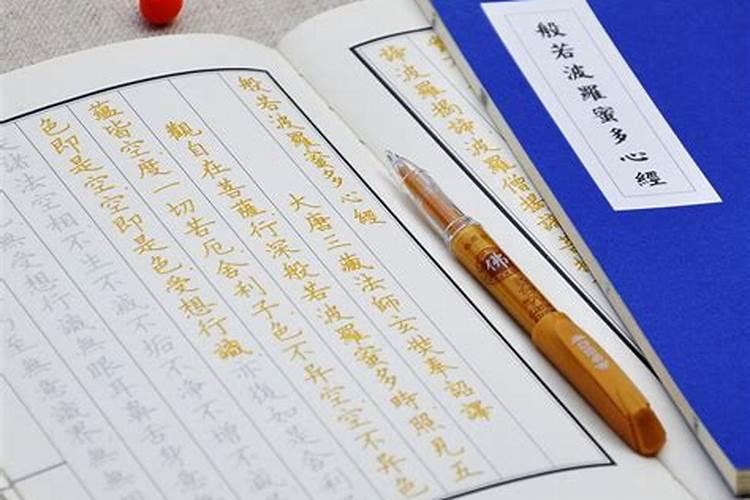 般若波羅蜜多心經
諦波羅揭諦波羅僧揭諦
般若波羅蜜多心經
大唐三藏法師玄奘奉詔譯
觀自在菩薩行深般若波羅蜜多時照見五
蘊皆空度一切苦厄舍利子色不异空空不异色
色即是空空即是色受想行識亦復如是舍利
諸法空相不生不滅不垢不淨不增不減
無受想行識無眼耳鼻舌身意
至無意識界無
佛